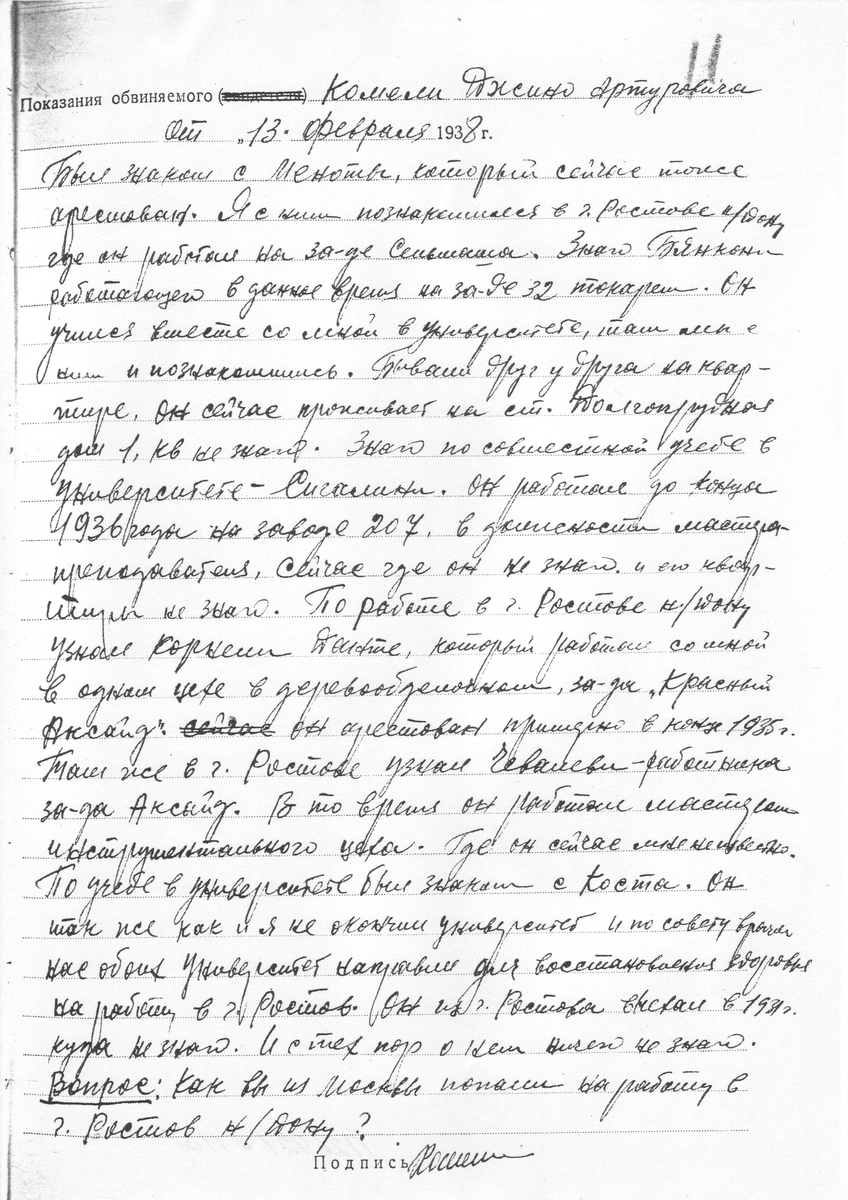 11
Показания обвиняемого (свидетеля) Комели Джино Артуровича
От „13. февраля 1938 г.
Был знаком с Меноты, который сейчас тоже
арестован. Я с ним познакомился в г. Ростове н/Дону
где он работал на за-де Сельмаша. Знаю Бянкони
работающего в данное время на за-де 32 токарем. Он
учился вместе со мной в Университете, там мы с
ним и познакомились. Бывали друг у друга на квар-
тире, он сейчас проживает на ст. Долгопрудная
дом 1, кв не знаю. Знаю по совместной учебе в
Университете - Сигалини. Он работал до конца
1936 года на заводе 207, в должности мастера-
преподавателя, Сейчас где он не знаю. и его квар-
тиры не знаю. По работе в г. Ростове н/Дону
узнал Корнели Данте, который работал со мной
в одном цехе в деревообделочном, за-да „Красный
Аксайд". сейчас он арестован примерно в конце 1935 г.
Там же в г. Ростове узнал Чевалеви - работника
за-да Аксайд. В то время он работал мастером
инструментального цеха. Где он сейчас мне неизвестно.
По учебе в университете был знаком с Коста. Он
так же как и я не окончил университет и по совету врачей
нас обоих университет направил для восстановления здоровья
на работу в г. Ростов. Он из г. Ростова выехал в 1931 г.
куда не знаю. И с тех пор о нем ничего не знаю.
Вопрос: Как вы из Москвы попали на работу в
г. Ростов н/Дону?
Подпись